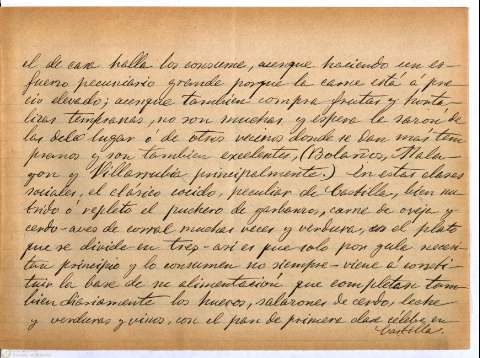 el de caza halla los consume, aunque haciendo un es-
fuerzo pecuniario grande porque la carne está á pre-
cio elevado; aunque tambien compra frutas y horta-
lizas tempranas, no son muchas y espera la sazon de
las del lugar ó de otros vecinos donde se dan mas tem
pranos y son tambien excelentes, (Bolaños, Mala-
gon y Villarrubia principalmente.) En estas clases
sociales, el clásico cocido, peculiar de Castilla, bien nu
trido ó repleto el puchero de garbanzos, carne de oveja y
cerdo-aves de corral muchas veces y verdura, es el plato
que se divide en tres-asi es que solo por gula necesi-
tan principio y lo consumen no siempre-viene á consti-
tuir la base de su alimentacion que completan tam-
bien diariamente los huevos, salazones de cerdo, leche
y verduras y vinos, con el pan de primera clase célebre en
Castilla.